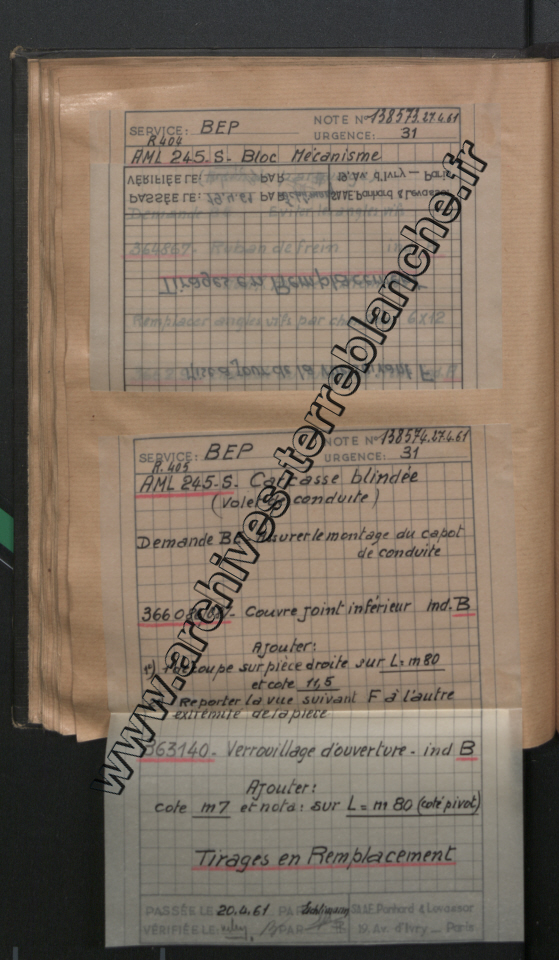 NOTE N° 138573.27.4.61
SERVICE: BEP
URGENCE: 31
R 404
AML 245-S- Bloc Mécanisme
VÉRIFIÉE LE PAR 19, Av. d'Ivry — Paris
PASSÉE LE 29.4.61 PAR St.A.E. Panhard & Levassor
364867- Ruban de frein
Tirages en Remplacement
Remplacer angles vifs par 6x12
Mise à jour de la suivant F
NOTE N° 138574.27.4.61
SERVICE: BEP
URGENCE: 31
R. 405
AML 245-S- Carcasse blindée
(Volet de conduite)
Demande BE Assurer le montage du capot
de conduite
Couvre joint inférieur Ind. B
Ajouter:
1°) coupe sur pièce droite sur L= m 80
et cote 11,5
Reporter la vue suivant F à l'autre
extrémité de la pièce
363140- Verrouillage d'ouverture - ind B
Ajouter:
cote m7 et nota: sur L= m 80 (coté pivot)
Tirages en Remplacement
PASSÉE LE 20.4.61 PAR St.A.E. Panhard & Levassor
VÉRIFIÉE LE: PAR 19, Av. d'Ivry — Paris
www.archives-terreblanche.fr